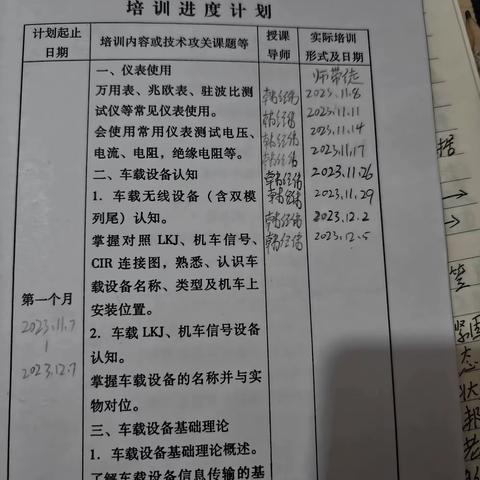 培训进度计划
计划起止日期
培训内容或技术攻关课题等
授课导师
实际培训形式及日期
一、仪表使用
万用表、兆欧表、驻波比测
试仪等常见仪表使用。
会使用常用仪表测试电压、
电流、电阻，绝缘电阻等。
二、车载设备认知
1．车载无线设备（含双模
列尾）认知。
掌握对照 LKJ、机车信号、
CIR 连接图，熟悉、认识车
载设备名称、类型及机车上
安装位置。
2．车载 LKJ、机车信号设备
认知。
掌握车载设备的名称并与实
物对位。
三、车载设备基础理论
1．车载设备基础理论概述。
了解车载设备信息传输的基
第一个月
2023.11.7
2023.12.7
师带徒
2023.11.8
2023.11.11
2023.11.14
2023.11.17
2023.11.26
2023.11.29
2023.12.2
2023.12.5